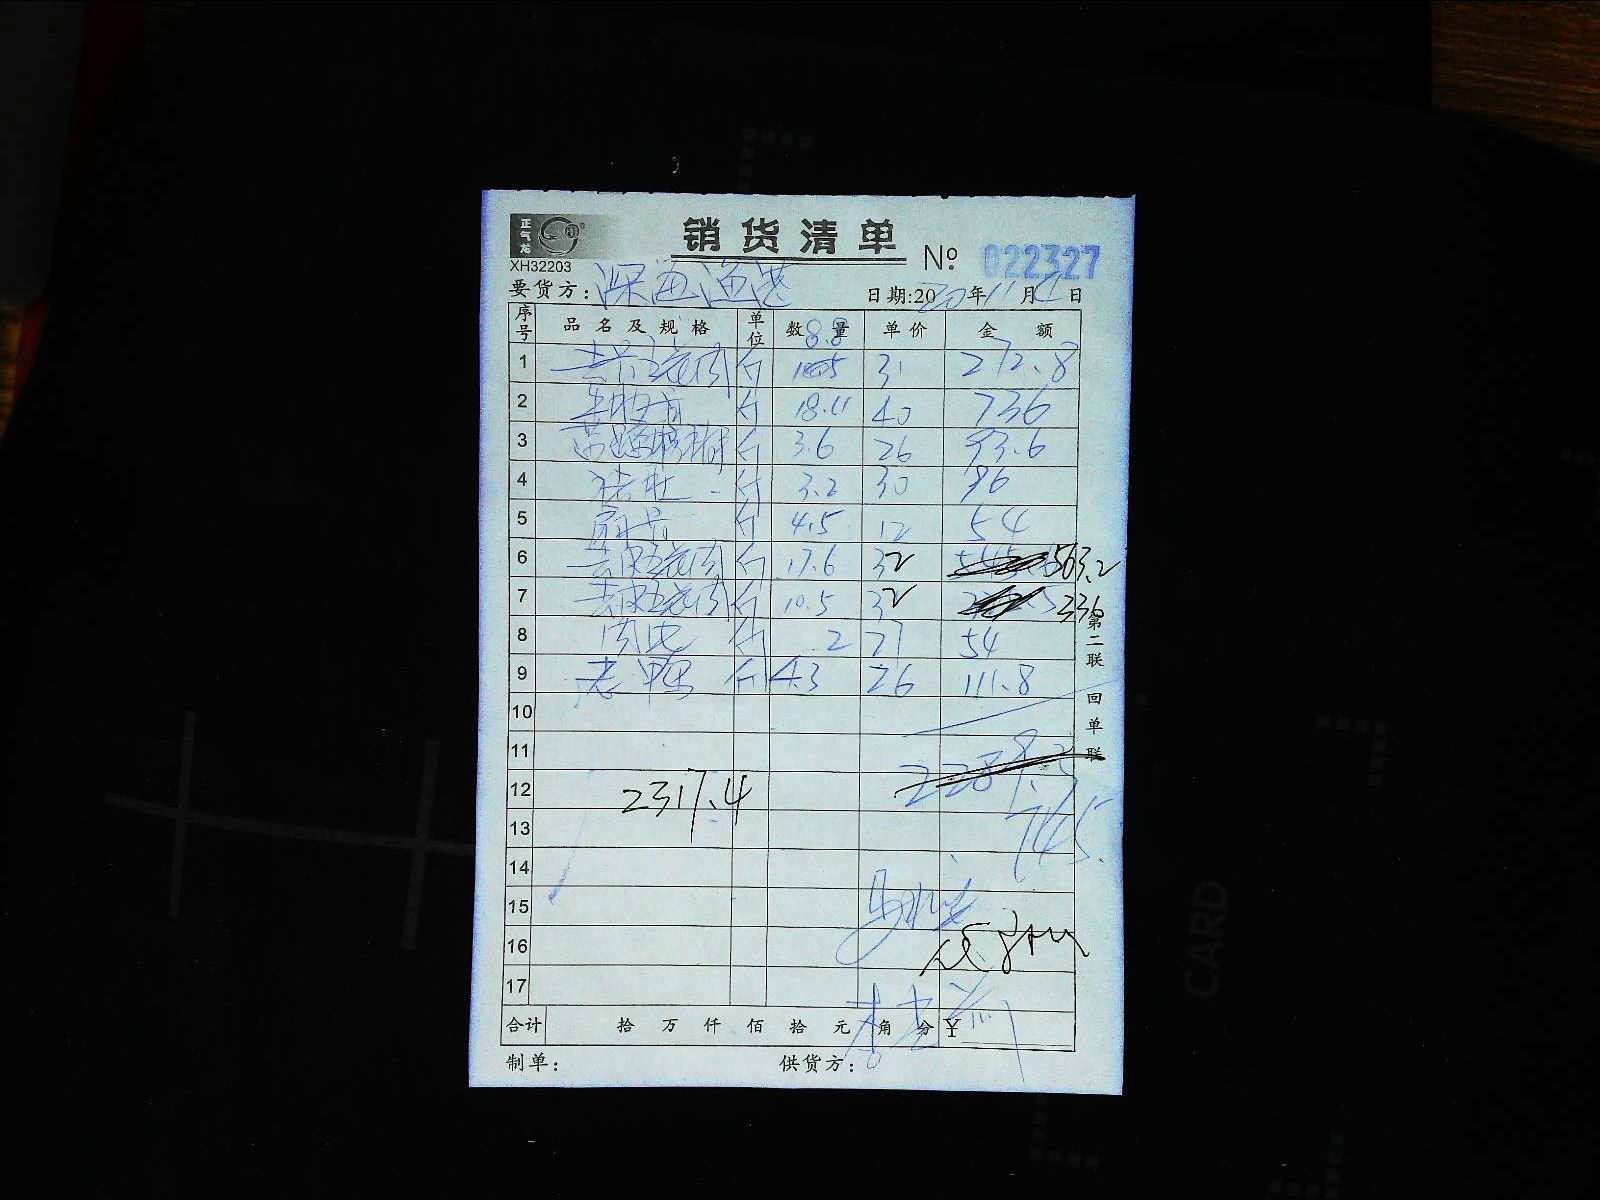 正气龙
销货清单
XH32203
№ 022327
要货方: 深海渔港 日期:2020年11月1日
序号 品名及规格 单位 数量 单价 金额
8.8
1 去骨五花肉 斤 31 272.8
2 斤 18.4 40 736
3 斤 3.6 26 93.6
4 猪肚 斤 3.2 30 96
5 扇骨 斤 4.5 12 54
6 去皮五花肉 斤 17.6 32 563.2
7 去皮五花肉 斤 10.5 32 336
8 斤 2 27 54
9 斤 4.3 26 111.8
10
11
12 2317.4
13 745.
14
15
16
17
合计 拾 万 仟 佰 拾 元 角 分 ¥
制单: 供货方:
第二联 回单联
CARD